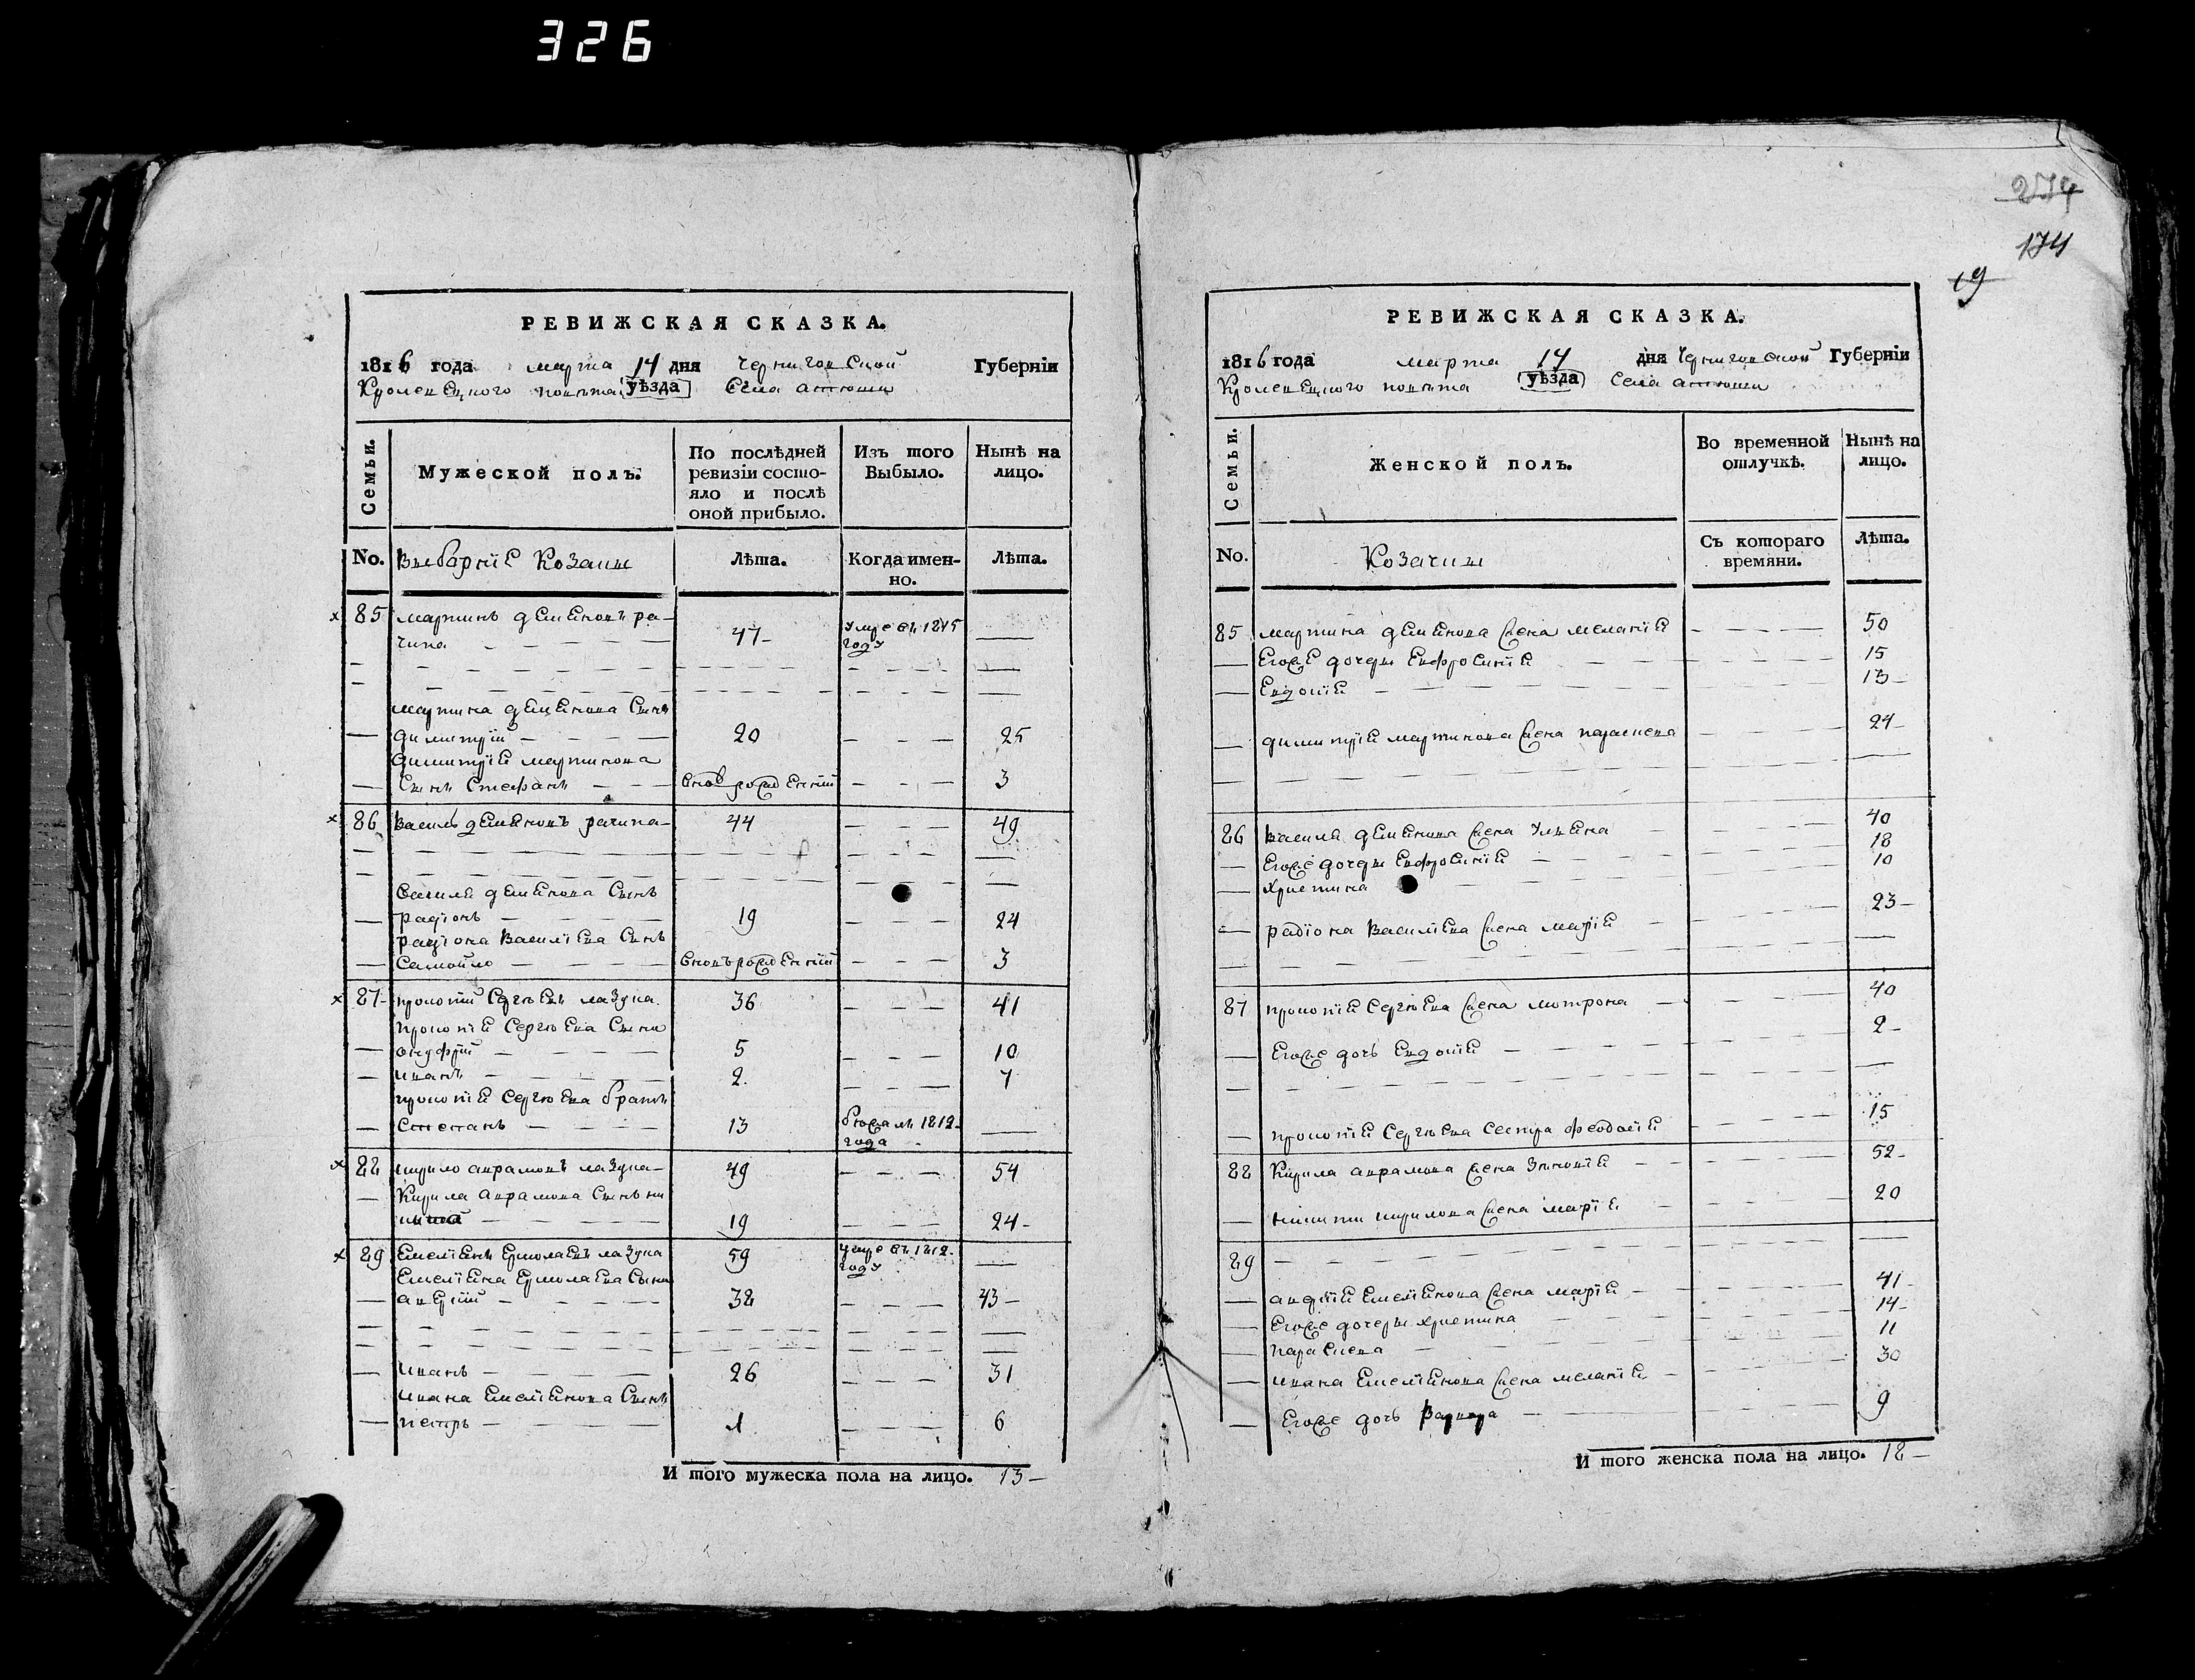 326
274
174
19
РЕВИЖСКАЯ СКАЗКА.
1816 года марта 14 дня Черниговской Губерніи
Кролевецкого повѣта уѣзда Села атюши
Семьи.
Мужеской полъ.
По послѣдней
ревизіи состо-
яло и послѣ
оной прибыло.
Изъ того
Выбыло.
Нынѣ на
лицо.
No. Выборніе Козаки Лѣта. Когда имен-
но. Лѣта.
85 мартинъ демяновъ ра-
чипа 47 умре въ 1815
году
мартина демянова Сынъ
димитрій 20 25
димитрія мартинова
Сынъ Стефанъ вновъ рожденній 3
86 василь демяновъ рачипа 44 49
василя демянова Сынъ
радіонъ 19 24
радіона василіева Сынъ
самойло вновъ рожденній 3
87 прокопій Сергѣевъ лазука 36 41
прокопія Сергѣева Сыни
онуфрій 5 10
иванъ 2 7
прокопія Сергѣева братъ
степанъ 13 бѣжалъ 1812
года
88 кирило аврамовъ лазука 49 54
Кирила аврамова Сынъ ни
кита 19 24
89 Емеліянъ Ермолаевъ лазука 59 умре въ 1812
году
Емеліяна Ермолаева Сыни
андрій 38 43
иванъ 26 31
ивана Емеліянова Сынъ
петръ 1 6
И того мужеска пола на лицо. 13
РЕВИЖСКАЯ СКАЗКА.
1816 года марта 14 дня Черниговской Губерніи
Кролевецкого повѣта уѣзда Села атюши
Семьи.
Женской полъ.
Во временной
отлучкѣ.
Нынѣ на
лицо.
No. Козачки Съ котораго
времяни. Лѣта.
85 мартина демянова жена меланія 50
Егоже дочеры Евфросинія 15
Евдокія 13
димитрія мартинова жена параскева 24
86 василя демянова жена уляна 40
Егоже дочеры Евфросинія 18
христина 10
радіона василіева жена марія 23
87 прокопія Сергѣева жена мотрона 40
Егоже дочь Евдокія 2
прокопія Сергѣева Сестра феодосія 15
88 Кирила аврамова жена зѣновія 52
никити кирилова жена марія 20
89
андрія Емеліянова жена марія 41
Егоже дочеры христина 14
параскева 11
ивана Емеліянова жена меланія 30
Егоже дочь варвара 9
И того женска пола на лицо. 18